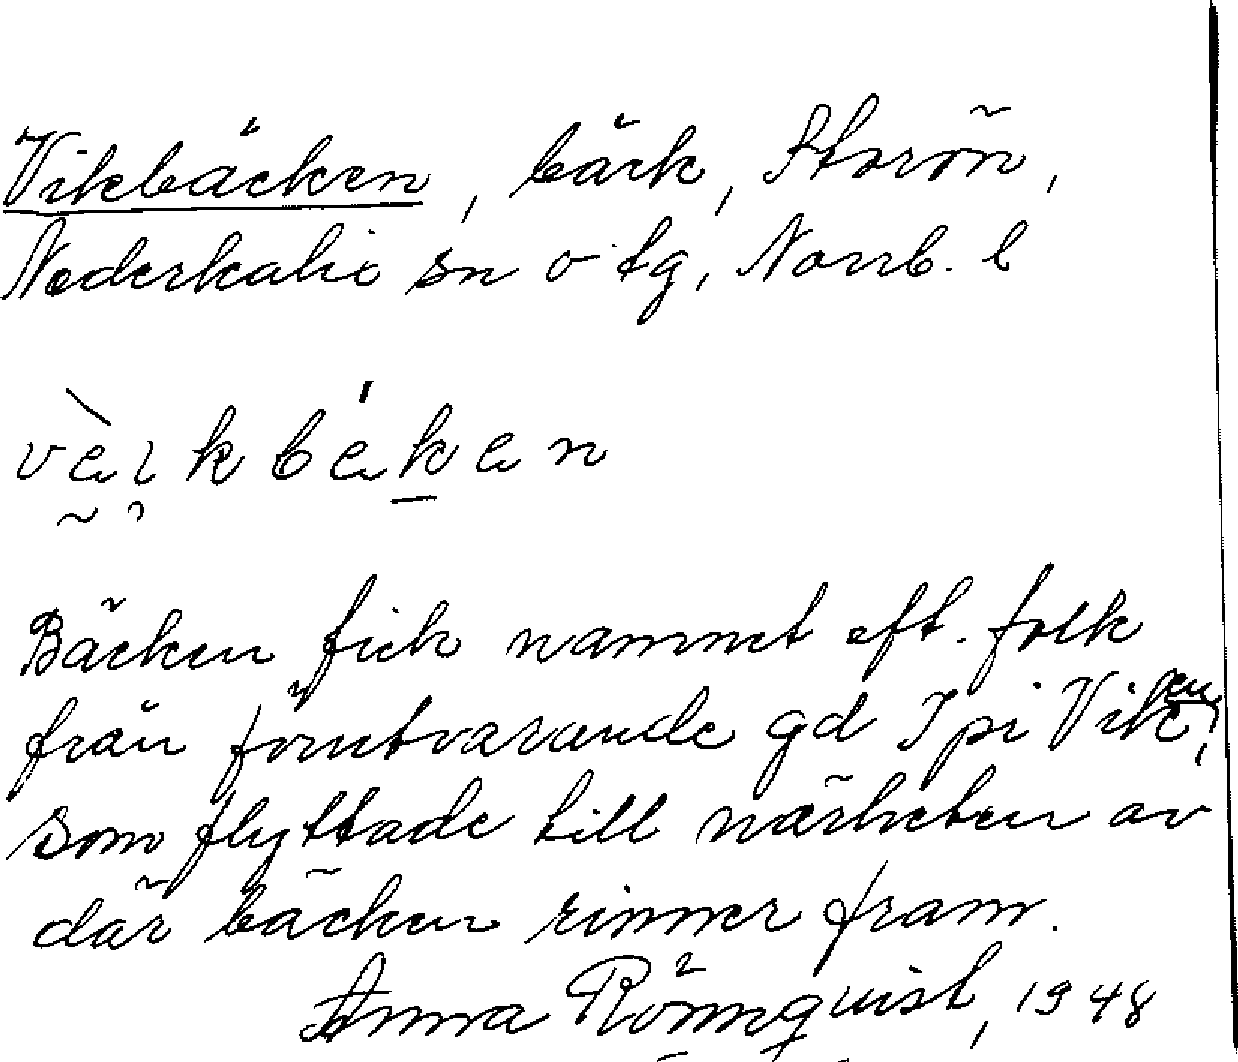 Vikbäcken, bäck, Storön,
Nederkalix sn o tg, Norrb. l
vèikbéken
Bäcken fick namnet eft. folk
från förutvarande gd I pi Viken,
som flyttade till närheten av
där bäcken rinner fram.
Anna Rönnquist, 1948